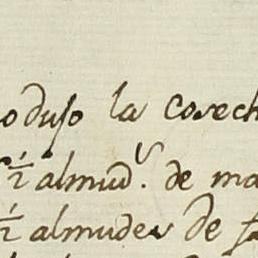 odujo la Cosech
½ almud.s de ma
½ almudes de